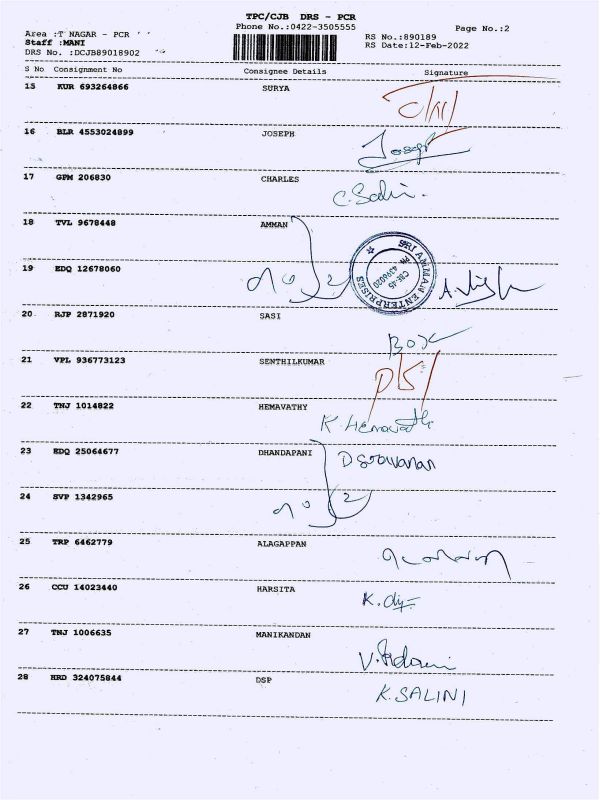 TPC/CJB DRS - PCR
Phone No.:0422-3505555
Page No.:2
Area :T NAGAR - PCR
RS No.:890189
Staff :MANI
RS Date:12-Feb-2022
DRS No. :DCJB89018902
S No Consignment No Consignee Details Signature
15 KUR 693264866 SURYA
16 BLR 4553024899 JOSEPH Joseph
17 GPM 206830 CHARLES
18 TVL 9678448 AMMAN
SRI AMMAN ENTERPRISES
CBE-45
19 EDQ 12678060
20 RJP 2871920 SASI
BOX
21 VPL 936773123 SENTHILKUMAR
22 TNJ 1014822 HEMAVATHY
K. Hemavathi
23 EDQ 25064677 DHANDAPANI
24 SVP 1342965
25 TRP 6462779 ALAGAPPAN
26 CCU 14023440 HARSITA
27 TNJ 1006635 MANIKANDAN
28 HRD 324075844 DSP
K.SALINI